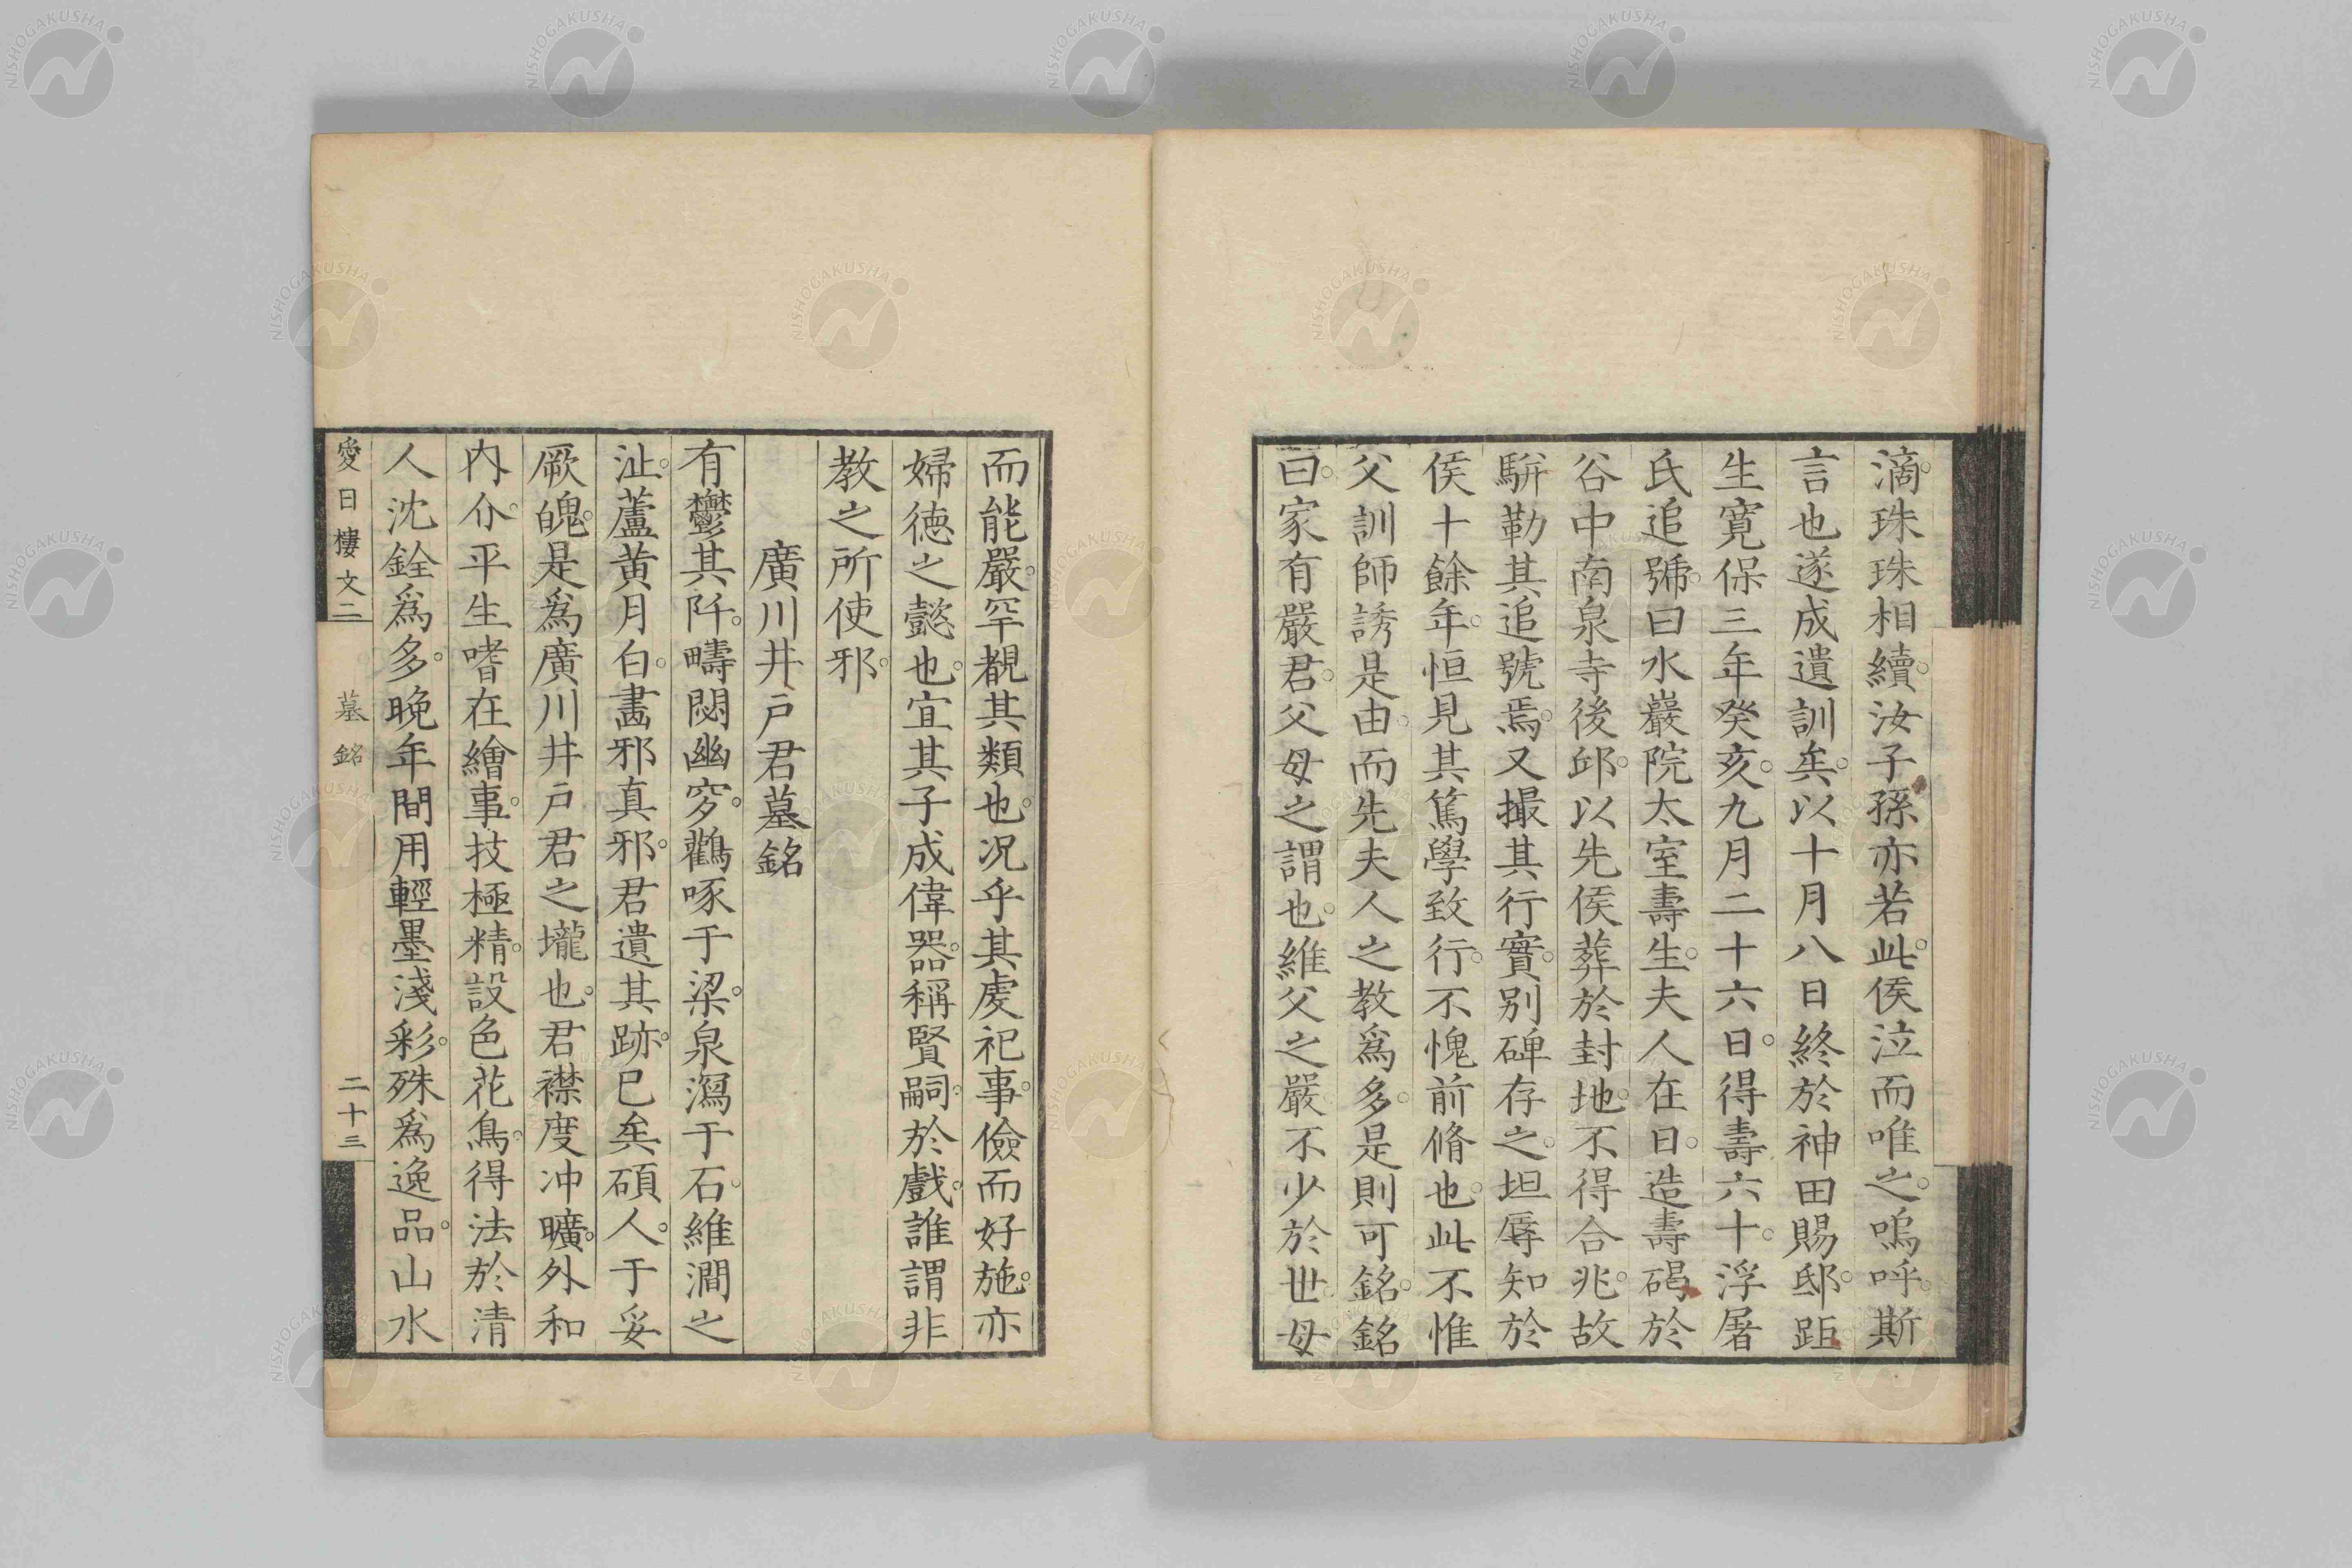 滴。珠珠相續。汝子孫亦若此。侯泣而唯之。嗚呼。斯
言也遂成遺訓矣。以十月八日終於神田賜邸。距
生寛保三年癸亥。九月二十六日。得壽六十。浮屠
氏追號。曰水巖院太室壽生。夫人在日。造壽碣於
谷中南泉寺後邱。以先侯葬於封地。不得合兆。故
駢勒其追號焉。又撮其行實。別碑存之。坦辱知於
侯十餘年。恒見其篤學致行。不愧前脩也。此不惟
父訓師誘是由。而先夫人之教爲多。是則可銘。銘
曰。家有嚴君。父母之謂也。維父之嚴。不少於世。母
而能嚴。罕覩其類也。况乎其虔祀事。儉而好施。亦
婦徳之懿也。宜其子成偉器。稱賢嗣。於戲。誰謂非
教之所使邪。
廣川井戸君墓銘
有鬱其阡。疇閟幽穸。鸛啄于梁。泉瀉于石。維澗之
沚。蘆黄月白。畵邪真邪。君遺其跡。已矣碩人。于妥
厥魄。是爲廣川井戸君之壠也。君襟度冲曠。外和
内介。平生嗜在繪事。技極精。設色花鳥。得法於清
人沈銓爲多。晩年間用輕墨淺彩。殊爲逸品。山水
愛日樓文二
墓銘
二十三
NISHOGAKUSHA